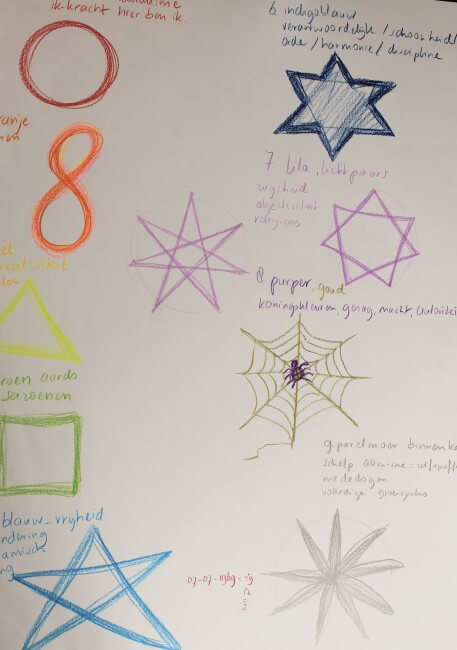 ik kracht hier ben ik.
reativiteit
roen aards
seizoenen
blauw - vrijheid
ndering
amisch
ng
6 indigoblauw
verantwoordelijk / schoonheid/
orde / harmonie / discipline
7 lila, lichtpaars
wijsheid
objectiviteit
religieus
8 purper, goud
koningskleuren, gezag, macht, autoritei
9 parelmoer binnenka
schelp
mededogen
volledige groeicyclus